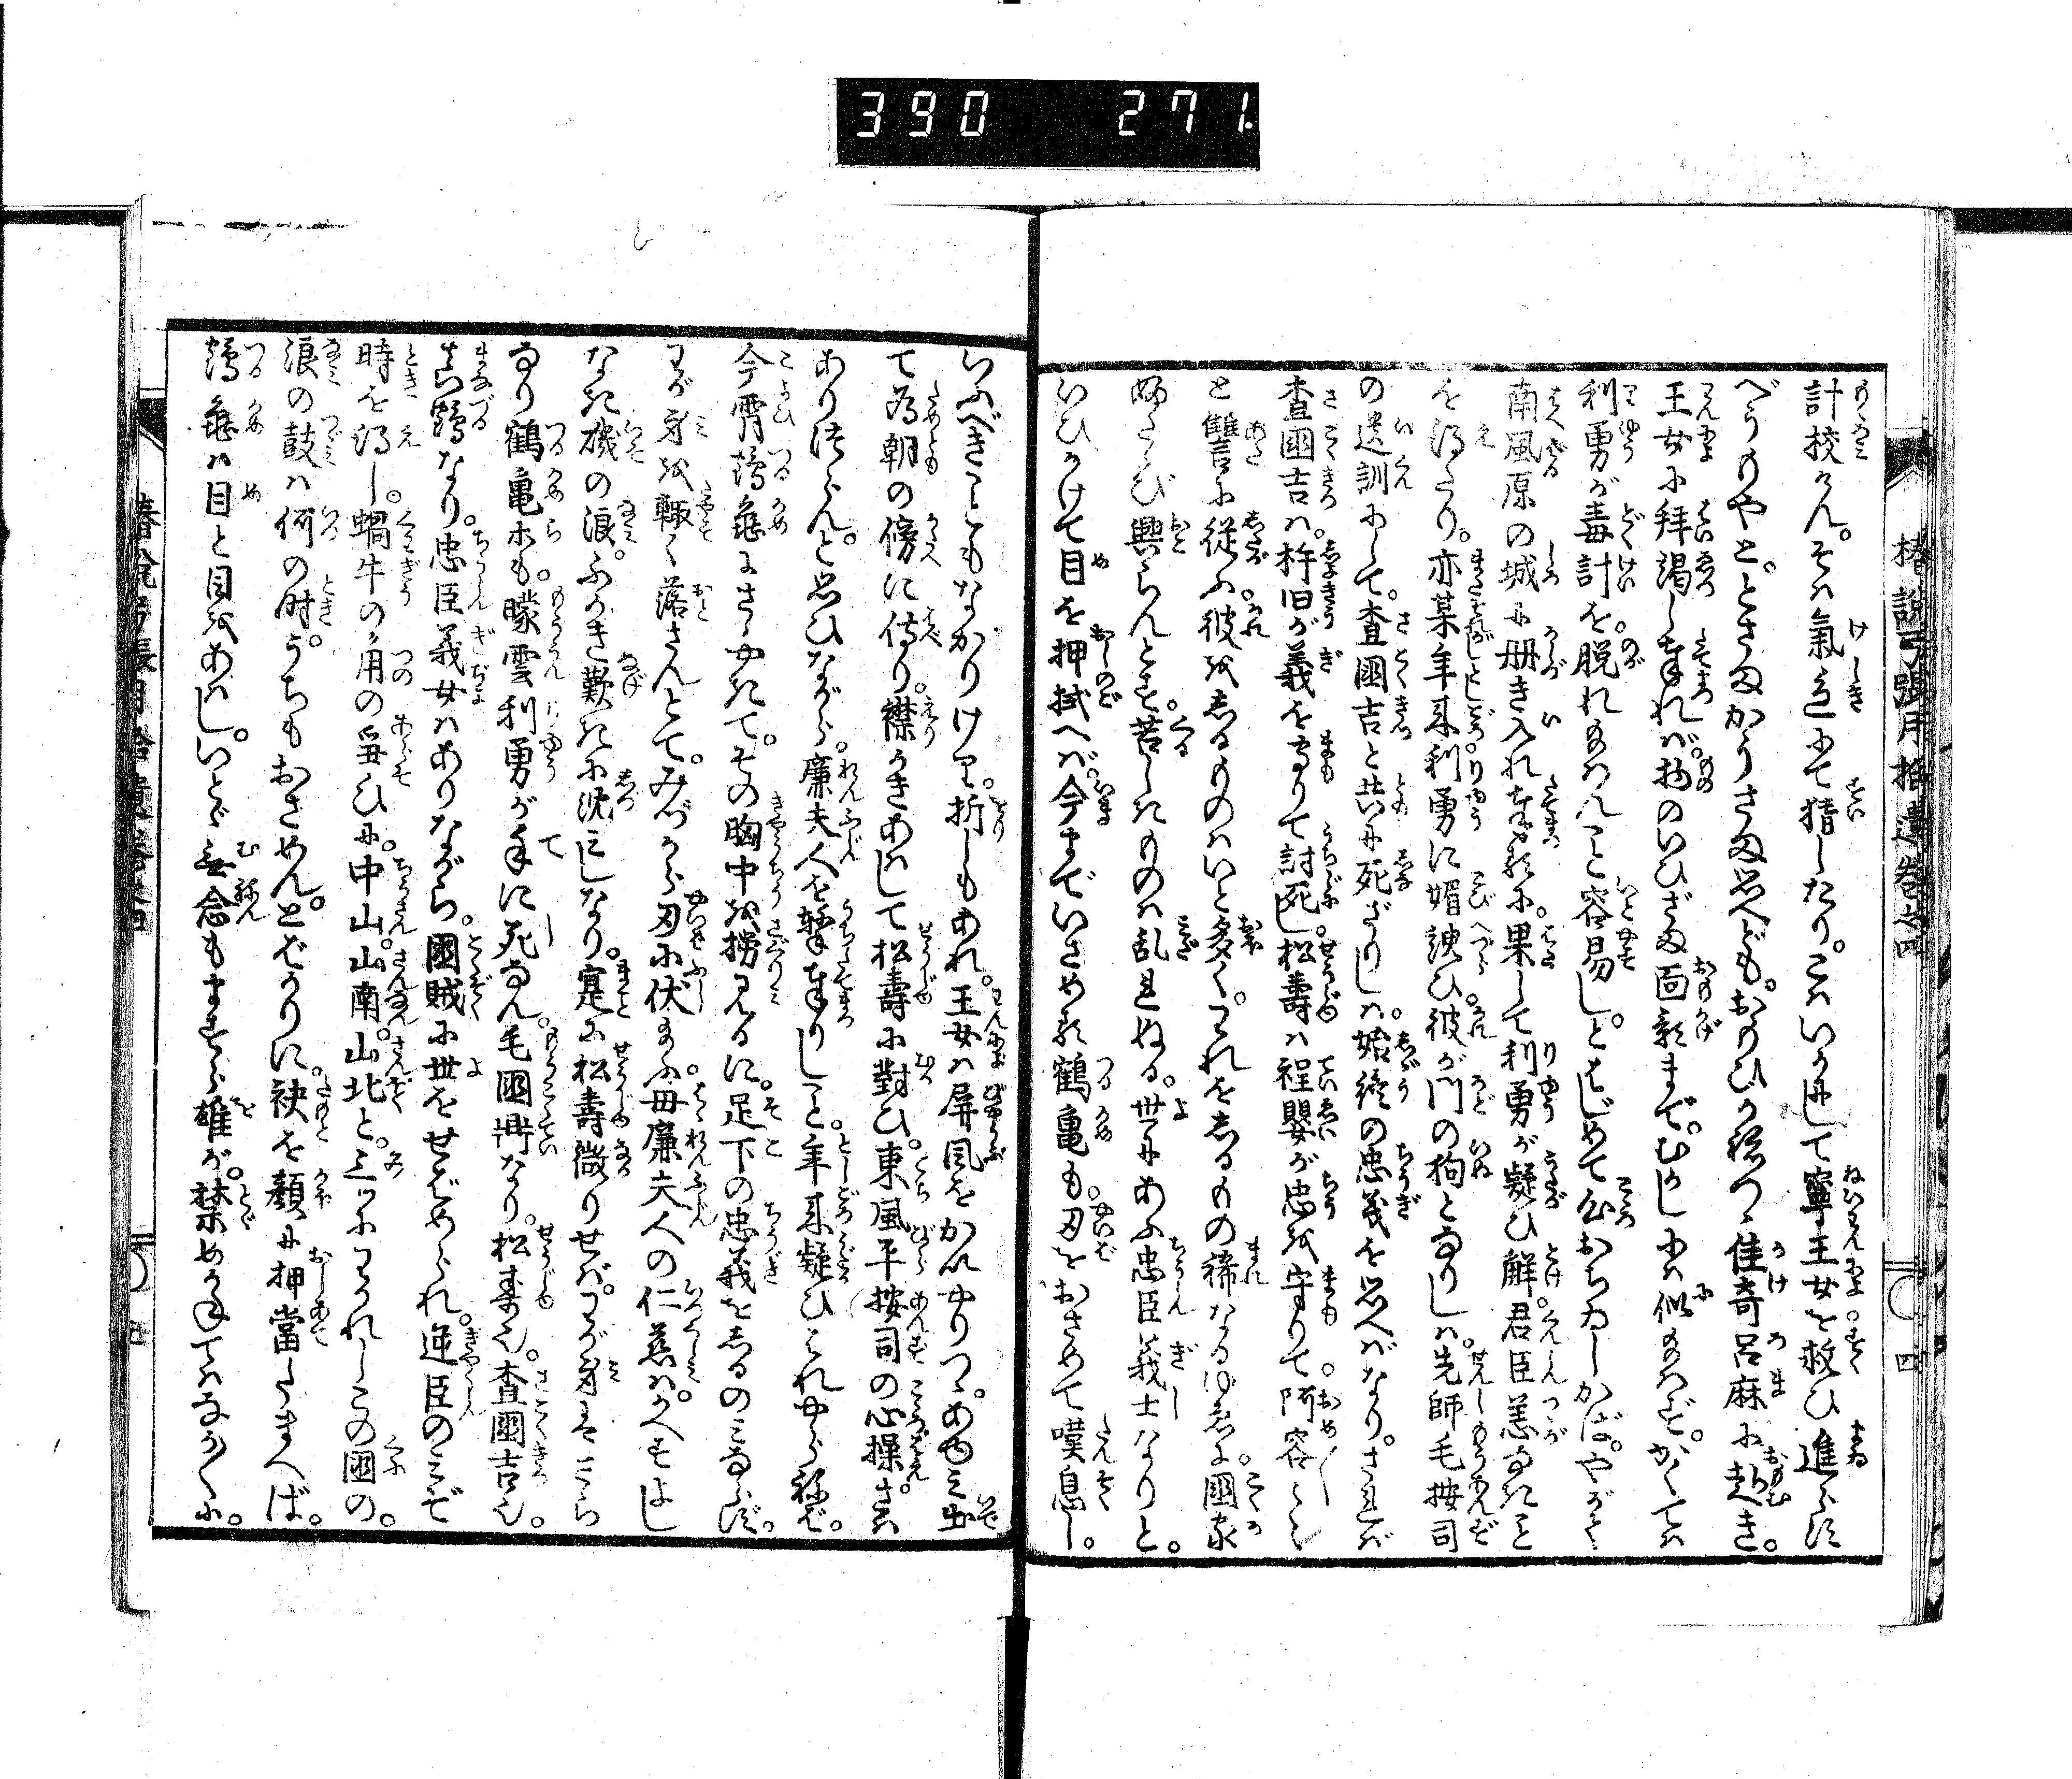 390 271
椿説弓張月拾遺巻之四
計校けん。そは氣色にて猜したり。こはいかにして寧王女を救ひ進らす
べうもやと。とさまかうさま思へども。おもひかねつゝ佳奇呂麻に赴き。
王女に拝謁し奉れば。物のいひざま面影まで。むかしには似給はず。かくては
利勇が毒計を。脱れ給はんこと容易しと。はじめて心おちゐしかば。やがて
南風原の城に册き入れ奉るに。果して利勇が疑ひ觧。君臣恙なきこと
を得たり。亦某年来利勇に媚諛ひ。彼が門の狗となりしは。先師毛按司
の遺訓にして。査國吉と共に死ざりしは。始終の忠義を思へばなり。されば
査國吉は。杵臼が義を守りて討死し。松壽は程嬰が忠を守りて。阿容〳〵
と讐に従ふ。彼をしるものはいと多く。これをしるもの稀なるゆゑに。國家
ふたゝび興らんとす。苦しきものは乱れぬる。世にあふ忠臣義士なりと。
いひかけて目を押拭へば。今まで いさめる鶴亀も。刃をおさめて嘆息し。
四
いふべきこともなかりけり。折しもあれ。王女は屏風をかいやりつゝ。あゆみ出
て為朝の傍に侍り。襟かきあはして松壽に對ひ。東風平按司の心操。さは
ありけんと思ひながら。廉夫人を撃奉りしこと。年来疑ひはれやらねば。
今霄鶴亀にさゝやきて。その胸中を撈みるに。足下の忠義をしるのみならず。
わが身を輙く落さんとて。みづから刃に伏給ふ。毋廉夫人の仁慈は。かへすよし
なき磯の浪。ふかき歎きに沈みしなり。寔に松壽微りせば。わが身はさら
なり鶴亀ホも。曚雲利勇が手に死なん。毛國鼎なり。松壽も。査國吉も。
真鶴なり。忠臣義女はありながら。國賊に世をせばめられ。逆臣のみぞ
時を得し。蝸牛の角の爭ひに。中山。山南。山北と。三ッにわかれしこの國の。
浪の鼓は何の时。うちもおさめん。とばかりに。袂を顔に押當たまへば。
鶴亀は目と目をあはし。いとゞ無念もますら雄が。禁めかねてはなか〳〵に。